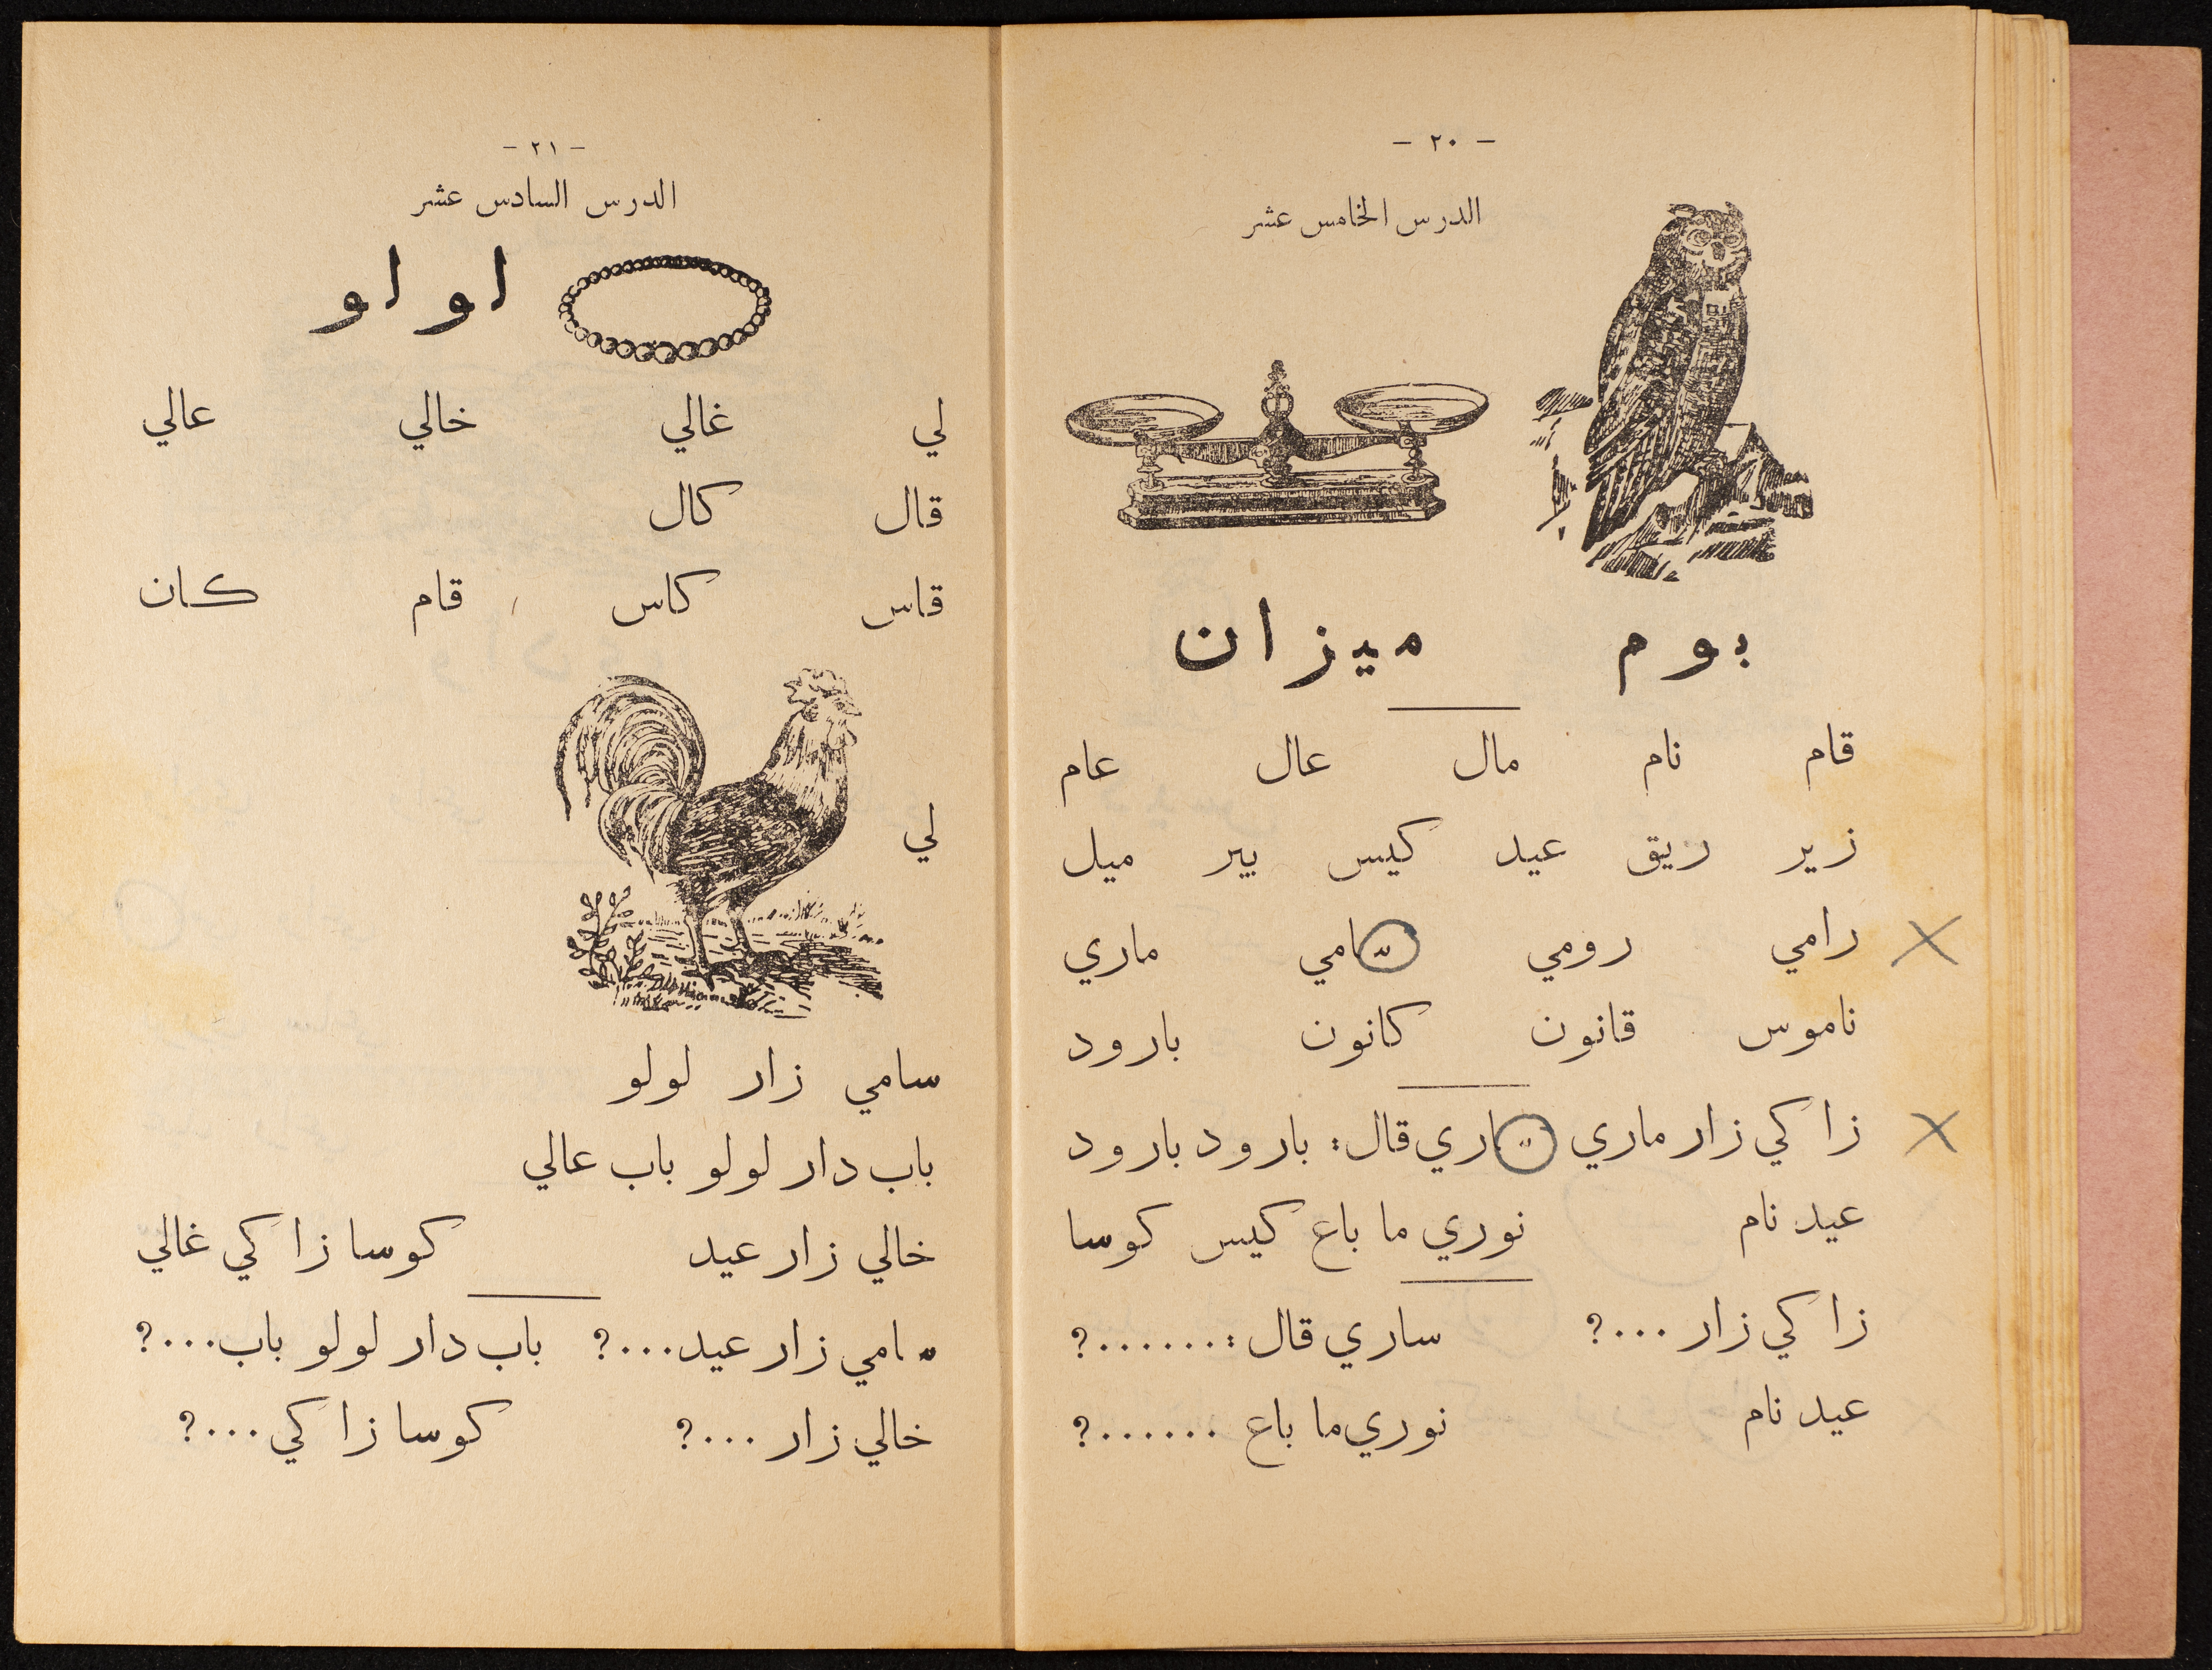 - ٢٠ -
الدرس الخامس عشر
بوم ميزان
قام نام مال عال عام
زير ريق عيد كيس بير ميل
رامي رومي سامي ماري
ناموس قانون كانون بارود
زاكي زار ماري ساري قال : بارود بارود
عيد نام نوري ما باع كيس كوسا
زاكي زار ...؟ ساري قال : .......؟
عيد نام نوري ما باع ......؟
- ٢١ -
الدرس السادس عشر
لو لو
لي غالي خالي عالي
قال كال
قاس كاس قام كان
لي
سامي زار لولو
باب دار لولو باب عالي
خالي زار عيد كوسا زاكي غالي
سامي زار عيد...؟ باب دار لولو باب...؟
خالي زار ...؟ كوسا زاكي ...؟